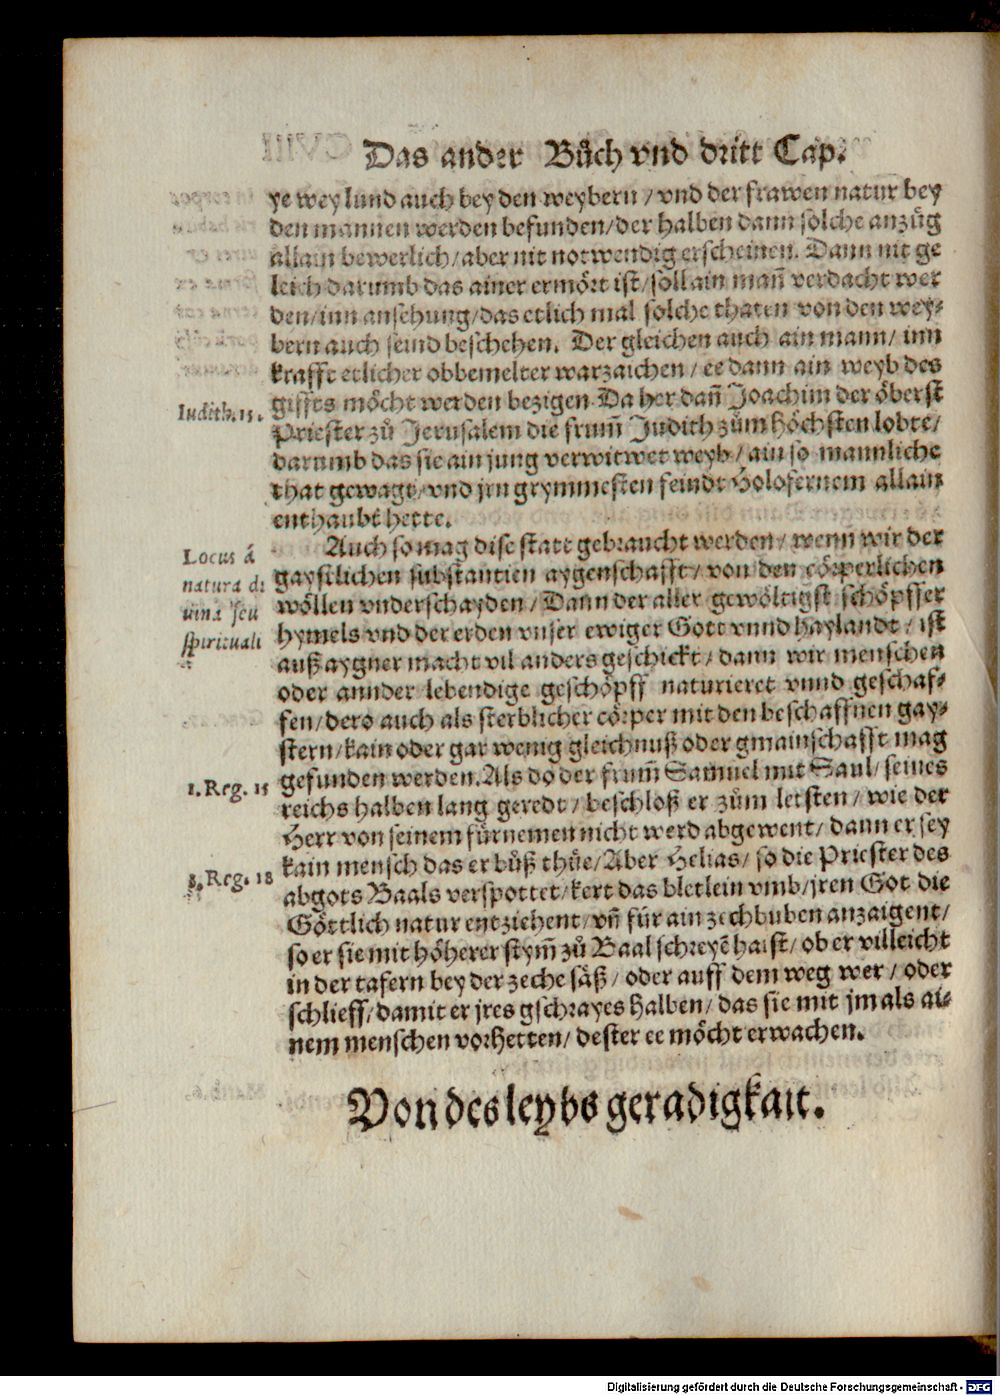 Das ander Bůch vnd dritt Cap.
ye weylund auch bey den weybern / vnd der frawen natur bey
den mannen werden befunden/der halben dann solche anzůg
allain bewerlich/aber nit notwendig erscheinen. Dann nit ge
leich darumb das ainer ermört ist/soll ain mañ verdacht wer
den/inn ansehung/das etlich mal solche thaten von den wey⸗
bern auch seind beschehen. Der gleichen auch ain mann/inn
krafft etlicher obbemelter warzaichen/ee dann ain weyb des
Iudith.15.
giffts möcht werden bezigen. Da her dañ Joachim der öberst
Priester zů Jerusalem die frum̃ Judith zům höchsten lobte/
darumb das sie ain jung verwitwet weyb/ain so mannliche
that gewagt/vnd jrn grymmesten feindt Holofernem allain
enthaubt hette.
Locus á
natura di
uina seu
spirituali
Auch so mag dise statt gebraucht werden/wenn wir der
gaystlichen substantien aygenschafft/von den cörperlichen
wöllen vnderschayden/Dann der aller gewöltigst schöpffer
hymels vnd der erden vnser ewiger Gott vnnd haylandt/ist
auß aygner macht vil anders geschickt/dann wir menschen
oder annder lebendige geschöpff naturieret vnnd geschaf⸗
fen/dero auch als sterblicher cörper mit den beschaffnen gay⸗
stern/kain oder gar wenig gleichnuß oder gmainschafft mag
1.Reg.15
gefunden werden. Als do der frum̃ Samuel mit Saul/seines
reichs halben lang geredt/beschloß er zům letsten/wie der
Herr von seinem fürnemen nicht werd abgewent/dann er sey
3.Reg.18
kain mensch das er bůß thüe/Aber Helias/so die Priester des
abgots Baals verspottet/kert das bletlein vmb/jren Got die
Göttlich natur entziehent/vñ für ain zechbuben anzaigent/
so er sie mit höherer stym̃ zů Baal schreyẽ haist/ob er villeicht
in der tafern bey der zeche säß/oder auff dem weg wer/oder
schlieff/damit er jres gschrayes halben/das sie mit jm als ai⸗
nem menschen vorhetten/dester ee möcht erwachen.
Von des leybs geradigkait.
Digitalisierung gefördert durch die Deutsche Forschungsgemeinschaft - DFG